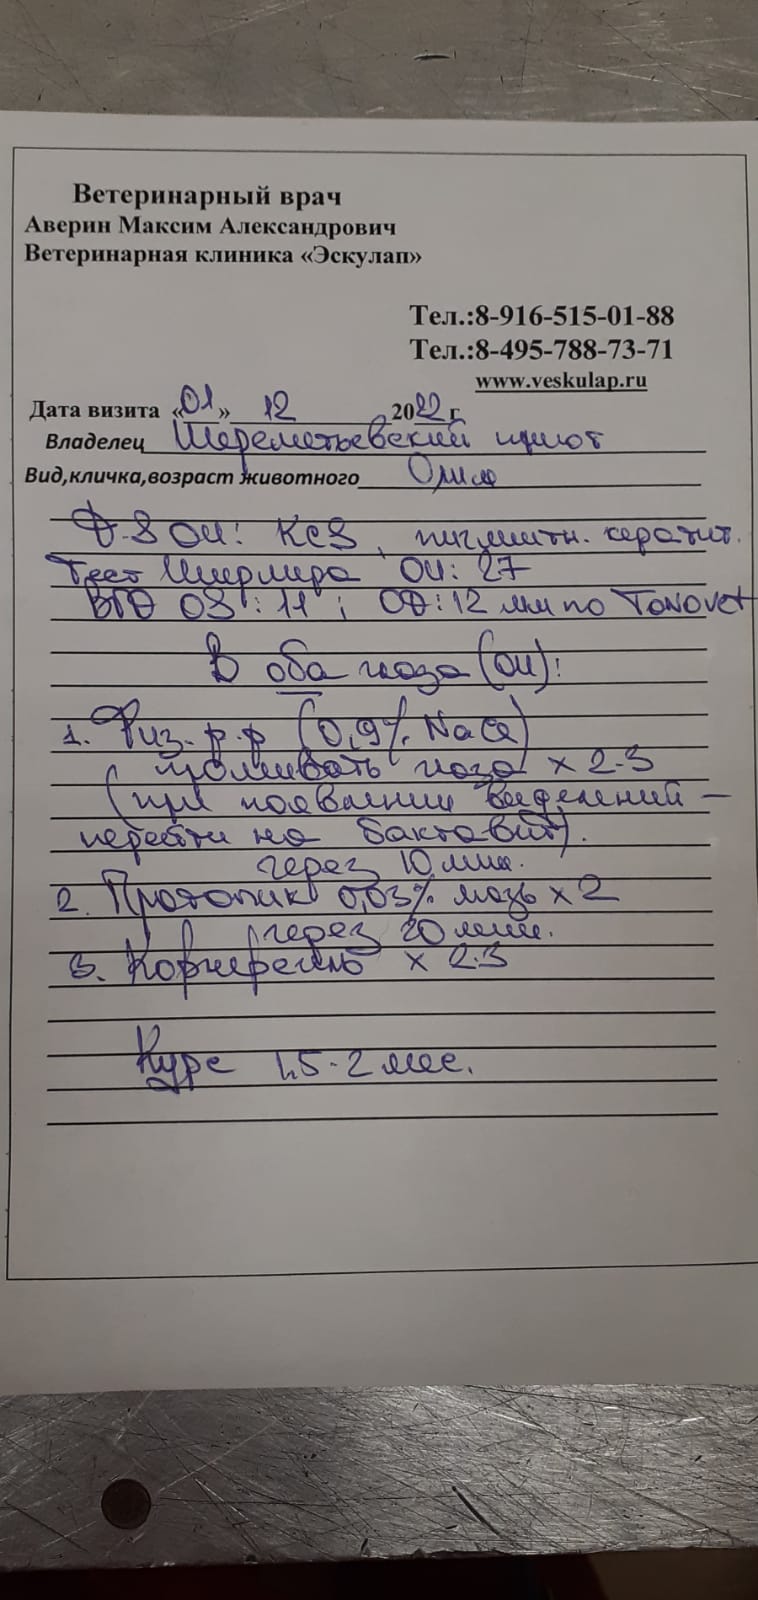 Ветеринарный врач
Аверин Максим Александрович
Ветеринарная клиника «Эскулап»
Тел.:8-916-515-01-88
Тел.:8-495-788-73-71
www.veskulap.ru
Дата визита «01» 12 2022 г.
Владелец Шереметьевский приют
Вид,кличка,возраст животного
D.S OU: , пигментн. кератит.
Тест Ширмера OU: 27
ВГД OS : 11 ; OD : 12 мм по Tonovet
В оба глаза (OU):
1. Физ. р-р (0,9% NaCl)
промывать глаза x 2-3
(при появлении выделений —
перейти на бактавит).
через 10 мин.
2. Протопик 0,03% мазь x 2
через 20 мин.
3. Корнерегель x 2-3
Курс 1,5-2 мес.